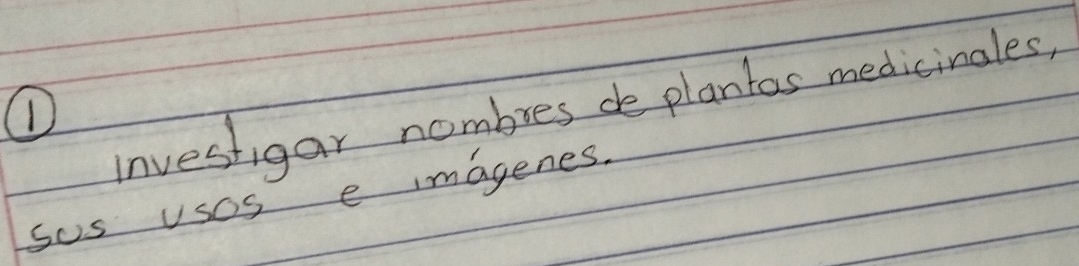 ①
investigar nombres de plantas medicinales,
sus usos e imágenes.